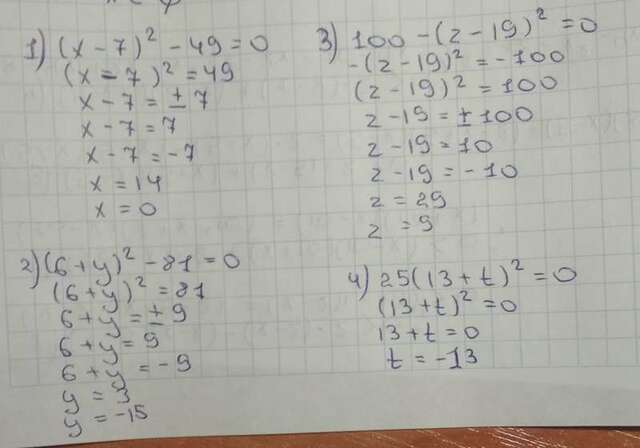 1) (x - 7)² - 49 = 0
(x - 7)² = 49
x - 7 = ± 7
x - 7 = 7
x - 7 = -7
x = 14
x = 0
2) (6 + y)² - 81 = 0
(6 + y)² = 81
6 + y = ± 9
6 + y = 9
6 + y = -9
y = 3
y = -15
3) 100 - (z - 19)² = 0
-(z - 19)² = -100
(z - 19)² = 100
z - 19 = ± 100
z - 19 = 10
z - 19 = -10
z = 29
z = 9
4) 25(13 + t)² = 0
(13 + t)² = 0
13 + t = 0
t = -13